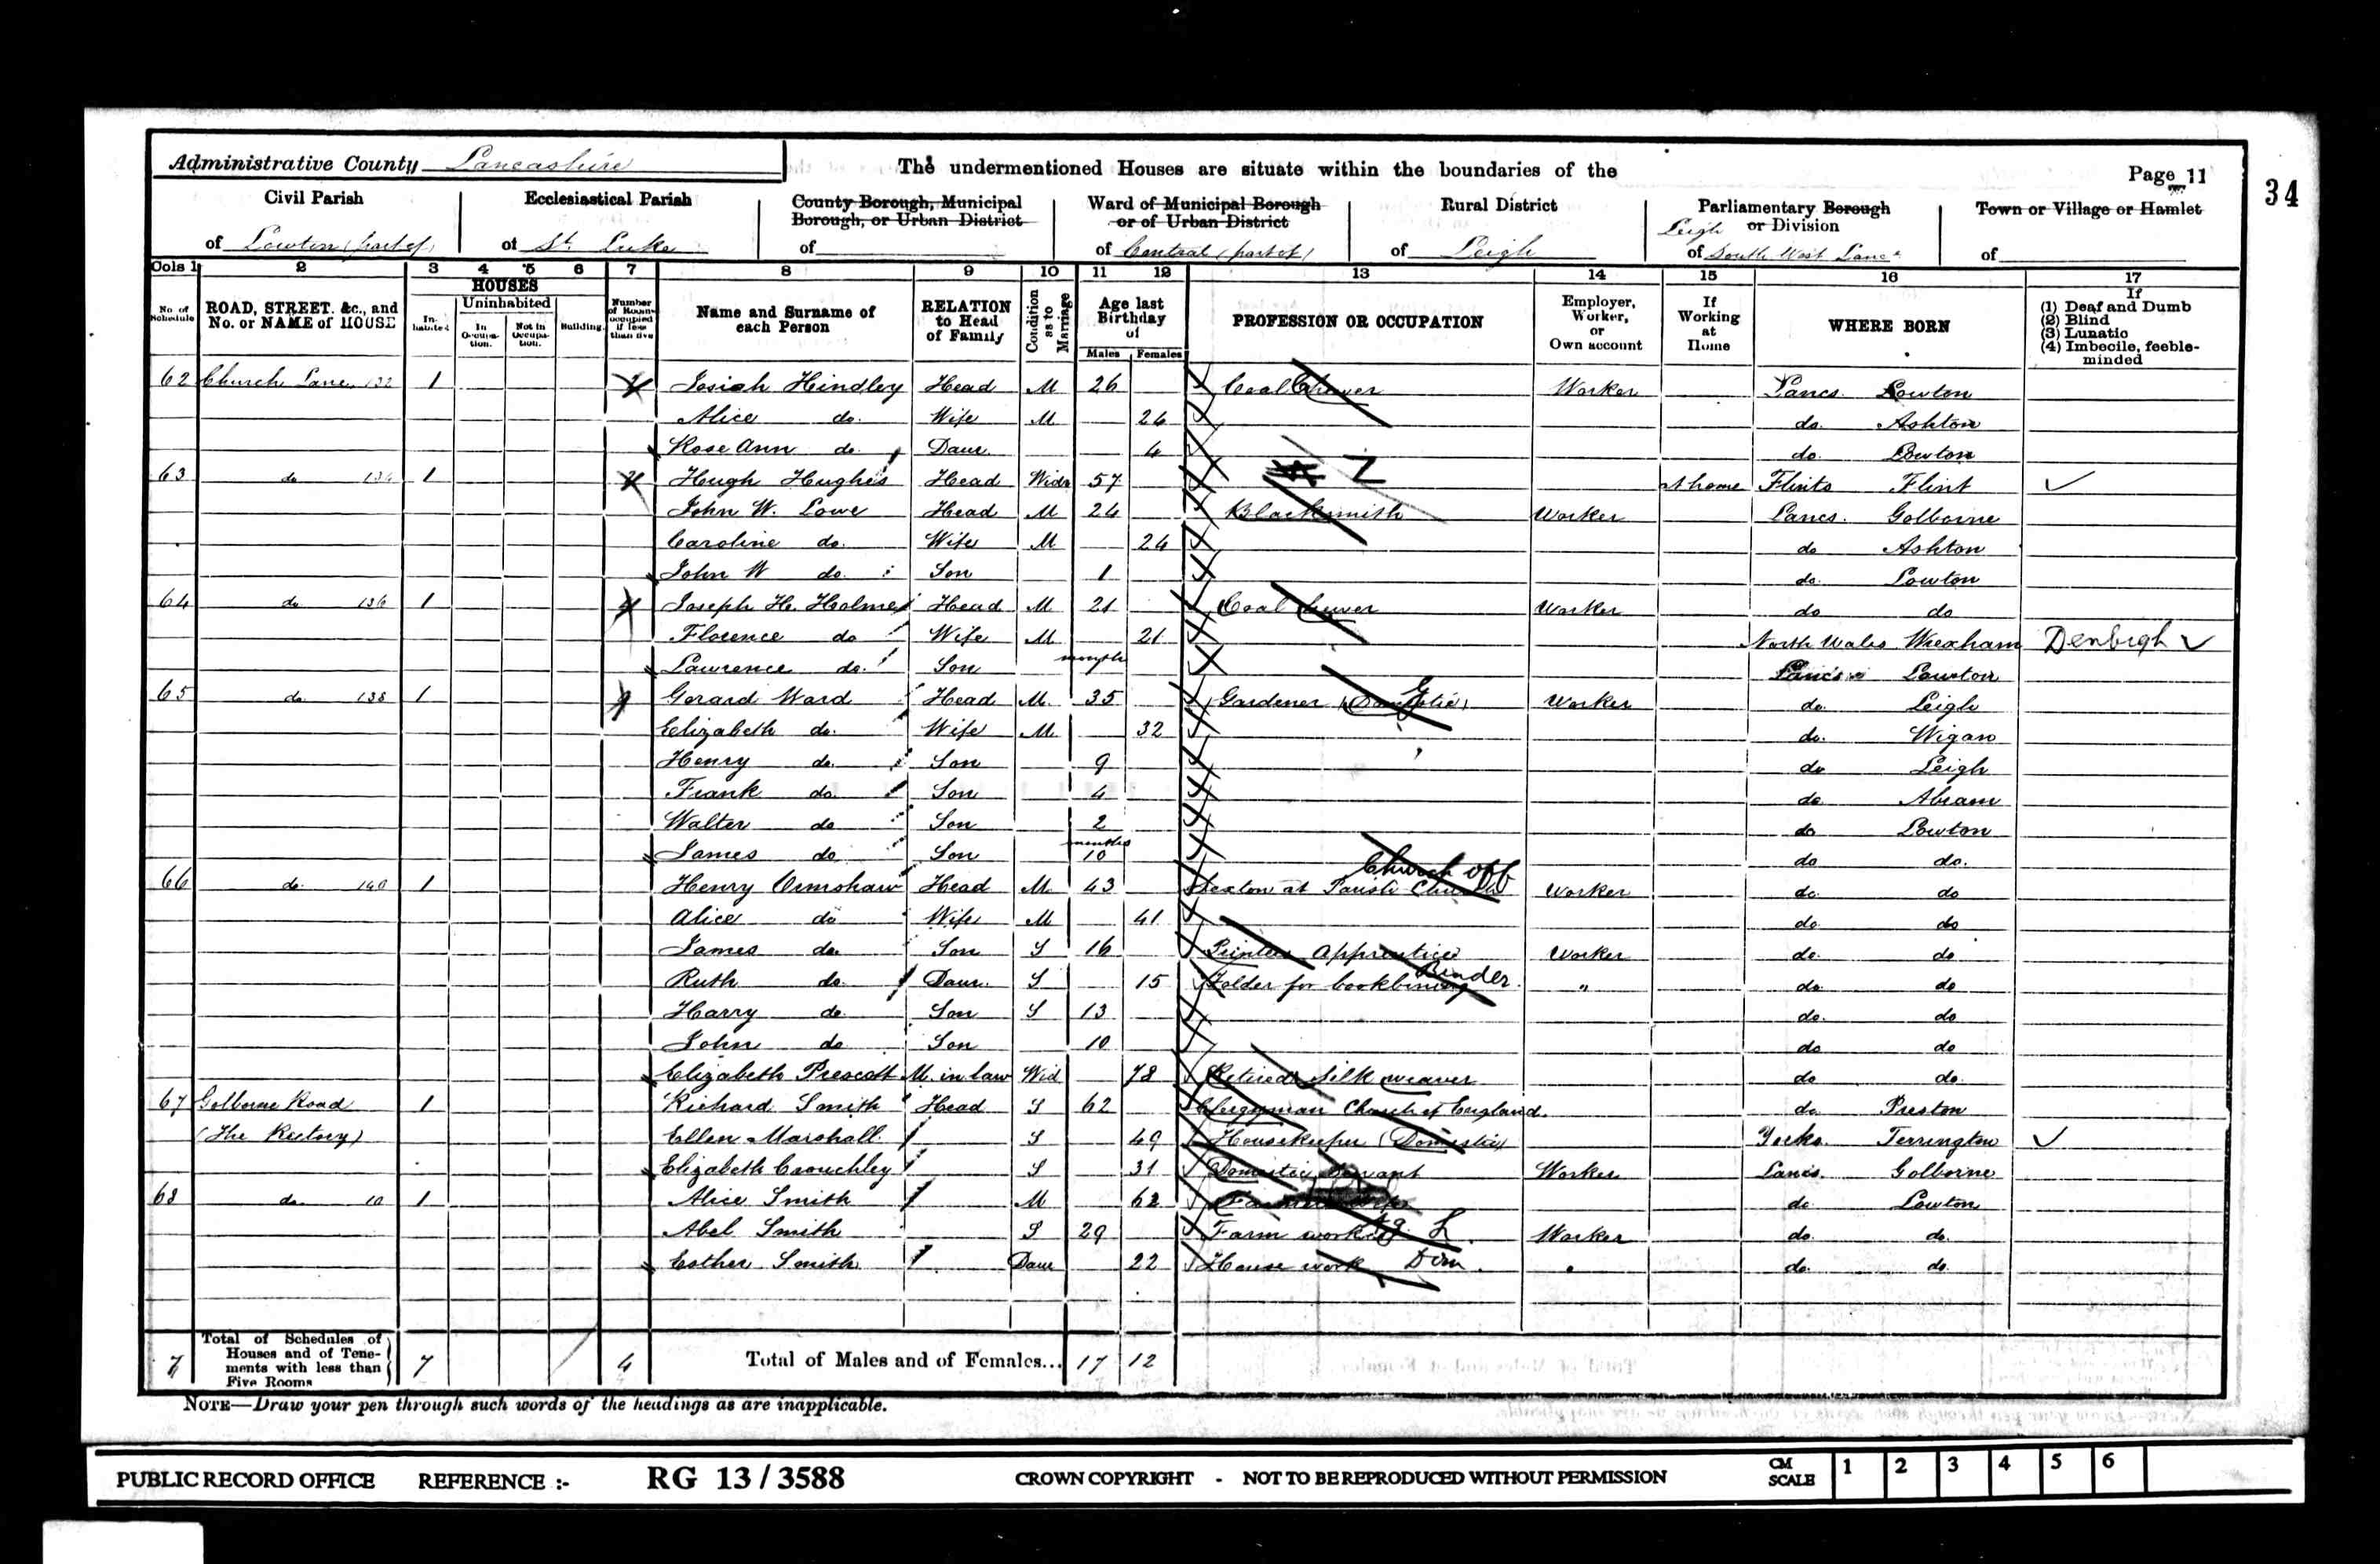 Administrative County Lancashire The undermentioned Houses are situate within the boundaries of the Page 11
34
Civil Parish Ecclesiastical Parish County Borough, Municipal Borough, or Urban District Ward of Municipal Borough or of Urban District Rural District Parliamentary Borough or Division Town or Village or Hamlet
of Lowton (part of) of St. Luke of of Central (part of) of Leigh Leigh of South West Lancs of
Cols 1 2 3 4 5 6 7 8 9 10 11 12 13 14 15 16 17
No. of Schedule ROAD, STREET, &c., and No. or NAME of HOUSE HOUSES Inhabited Uninhabited In Occupation. Not in Occupation. Building. Number of Rooms occupied if less than five Name and Surname of each Person RELATION to Head of Family Condition as to Marriage Age last Birthday of Males Females PROFESSION OR OCCUPATION Employer, Worker, or Own account If Working at Home WHERE BORN If (1) Deaf and Dumb (2) Blind (3) Lunatic (4) Imbecile, feeble-minded
62 Church Lane 132 1 4 Josiah Hindley Head M 26 Coal Hewer Worker Lancs. Lowton
Alice do. Wife M 24 do. Ashton
Rose Ann do. Daur. 4 do. Lowton
63 do 134 1 4 Hugh Hughes Head Widr 57 at home Flints Flint
John W. Lowe Head M 24 Blacksmith Worker Lancs. Golborne
Caroline do. Wife M 24 do Ashton
John W do. Son 1 do. Lowton
64 do 136 1 4 Joseph H. Holmes Head M 21 Coal Hewer Worker do do
Florence do Wife M 21 North Wales Wrexham Denbigh
Lawrence do. Son months Lancs Lowton
65 do. 138 1 Gerard Ward Head M. 35 Gardener (Domestic) G Worker do. Leigh
Elizabeth do. Wife M. 32 do. Wigan
Henry do. Son 9 do Leigh
Frank do. Son 4 do. Abram
Walter do Son 2 do Lowton
James do Son months 10 do do.
66 do. 140 1 Henry Ormshaw Head M. 43 Sexton at Parish Church Church off Worker do. do
Alice do Wife M 41 do. do
James do. Son S 16 Printers Apprentice Worker do. do
Ruth do. Daur. S 15 Folder for bookbinding Binder " do. do
Harry do. Son S 13 do. do
John do Son 10 do do
Elizabeth Prescott M. in law Wid 78 Retired Silk weaver do do.
67 Golborne Road 1 Richard Smith Head S 62 Clergyman Church of England. do. Preston
(The Rectory) Ellen Marshall. S 49 Housekeeper (Domestic) Yorks. Terrington
Elizabeth Crouchley S 31 Domestic Servant Worker Lancs. Golborne
68 do. 10 1 Alice Smith M 62 do. Lowton
Abel Smith S 29 Farm work Worker do. do.
Esther Smith Daur 22 House work Dom. do. do.
7 Total of Schedules of Houses and of Tenements with less than Five Rooms 7 4 Total of Males and of Females... 17 12
NOTE—Draw your pen through such words of the headings as are inapplicable.
PUBLIC RECORD OFFICE REFERENCE :- RG 13 / 3588 CROWN COPYRIGHT - NOT TO BE REPRODUCED WITHOUT PERMISSION CM SCALE 1 2 3 4 5 6